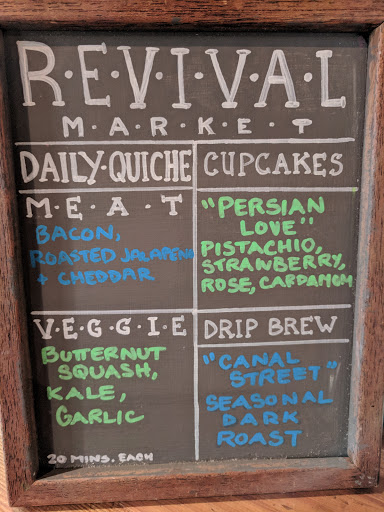 R·E·V·I·V·A·L
M·A·R·K·E·T
DAILY·QUICHE
M·E·A·T
BACON,
ROASTED JALAPENO
+ CHEDDAR
V·E·G·G·I·E
BUTTERNUT
SQUASH,
KALE,
GARLIC
20 MINS. EACH
CUPCAKES
"PERSIAN
LOVE"
PISTACHIO,
STRAWBERRY,
ROSE, CARDAMOM
DRIP BREW
"CANAL
STREET"
SEASONAL
DARK
ROAST